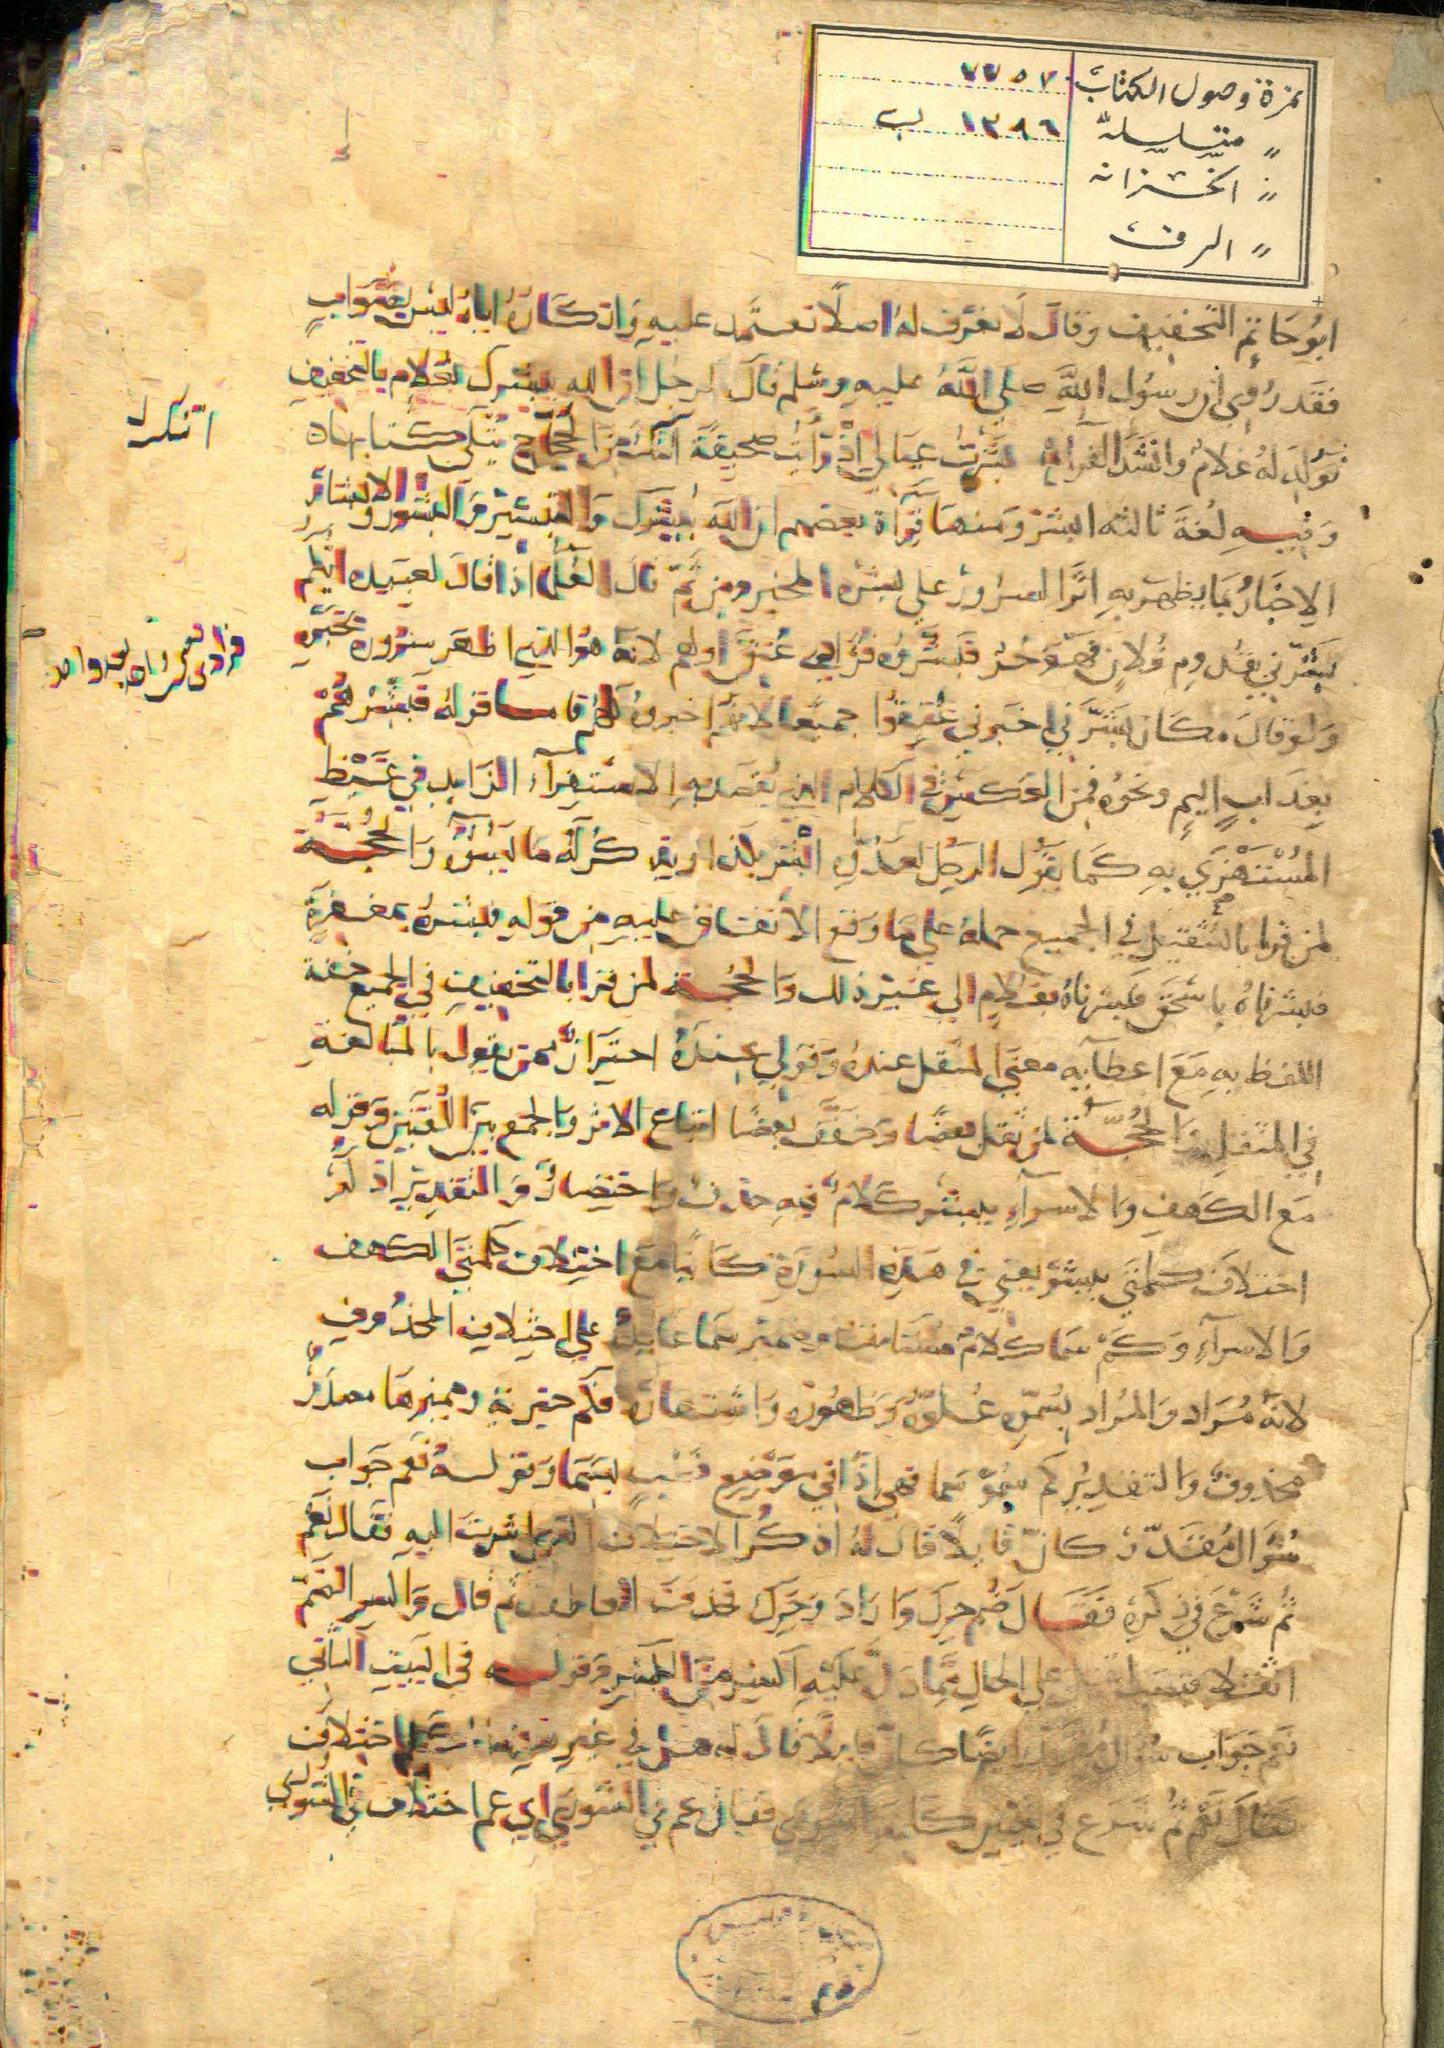 نمرة وصول الكتاب ٧٧٥٧
〃 متسلسلة ١٣٨٦ ب
〃 الخزانه
〃 الرف
ابُو حَاتمٍ التخفيف وقال لا نعرف لهُ اصلًا نعتمد عليهِ وَان كَانَ اباهُ ليس بصَوَابٍ
فقَد رُوِيَ ان رسُول اللهِ صلي اللهُ عليهِ وسلم قَالَ لرجل ان الله يبشرك بغلامٍ بالتخفيف
فوُلِدَ لهُ غلامٌ وانشَدَ الفرآءُ بَشَرْتُ عيَالي اذْ رَأيتُ صحيفَةً اتتكَ مِنَ الحجّاج يُتلَى كتابها
اتتك
وَفيهِ لغةَ ثالثه ابشرَ وَمنهَا قرَآة بعضهم ان الله يُبشِرك وَالتبشير وَالبشور والابشار
الاِخبَارُ بمَا يظهر بهِ اثرُ السرُور علي بشرة المخبر ومن ثَمّ قال العُلمآ اذَا قالَ لعبيده ايكم
بَشّرَني بقدُومِ فُلانٍ فهوَ حُرّ فبَشّرُوه فُرَادي عُتقَ اولهم لانهُ هوَ الذي اظهَر سرُوره بخبَرهِ
فرادى
بعد واحد
وَلو قالَ مكَان بَشّرَني اخبَرني عُتِقُوا جميعًا لانهُم اخبروهُ كلهُم فامّا قوله فبَشِّرْهُمْ
بِعذَابٍ اليمٍ ونحوُه فمن العَكسِ في الكلام الذي يُقصَد بهِ الاستهزآء الزايد في غَيظِ
المُسْتَهْزَي بهِ كمَا يقُول الرجُل لعَدُوّهِ ابشر وَالحُجّة
لمن قرا بالتثقيل في الجميع حملهُ علي مَا وَقع الاتفاق عليهِ من قوله فبشرهُ بمغفرةٍ
فبشرناهُ باسحَق فبشرناهُ بغلامٍ الي غير ذلك وَالحُجّة لمن قرا بالتخفيفِ في الجميع خفة
اللفظ بهِ مَعَ اعطآيه معنَي المثقل عندهُ وَقولي عندهُ احترَازٌ ممن يقول بالمبالغةِ
في المثقلِ وَالحُجّة لمن ثقل بعضًا وَخفّفَ بعضًا اتباع الاثر وَالجمع بَيْن اللغتَين وَقوله
مَعَ الكهفِ وَالاسرآءِ يبشر كلامٌ فيهِ حذفٌ وَاختصَارٌ وَالتقدير اذكر
اختلافَ كلمتَي يبشر يعني في هذهِ السُورَةِ كَاينًا مَع اختلاف كلمتَي الكهف
وَالاسرآءِ وَكمْ سَمَا كلامٌ مُستَانف وضمير سَمَا عَايدٌ علي الاختلاف المحذُوفِ
لانهُ مُرَاد وَالمُراد بسُمُوّهِ عُلوّهُ وَظهُورُه وَاشتهارُه فكم خبرية وَمميزهَا مصدَرٌ
محذوفٌ وَالتقدِيرُ كم سُمُوّ سَما فهي اذًا في مَوْضِع نصْبٍ بسَمَا وَقولهُ نَعم جَواب
سُؤال مُقدّرٌ كانّ قايلًا قالَ لهُ اذكُر الاختلاف الذي اشرتَ اليهِ فقَال نَعَم
ثمّ شرَعَ في ذكرهِ فقَالَ ضُم حرِك وَارَادَ وَحَرّك فحذفَ العاطف ثم قال وَاكسرِ الضَمَّ
اثقلا علي الحالِ مِمّا دَلّ عَليْهِ اكسر منَ الكسر وَقوله في البيتِ الثاني
نَعم جَوَاب سُؤال مُقدّر ايضًا كانّ قايلًا قالَ له هل في غير اختلاف
فقالَ نَعم ثمّ شرَع في فقال عم في الشوري اي عم اختلاف في الشوري